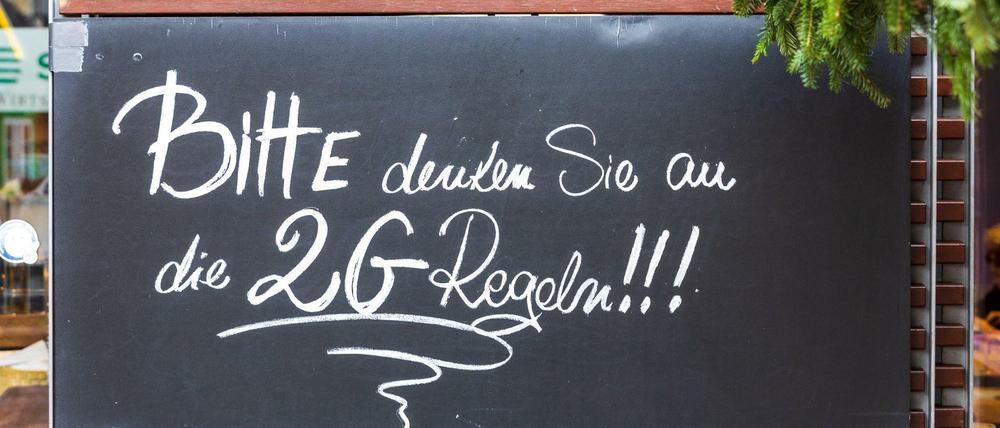 BittE denken Sie an
die 2G Regeln!!!